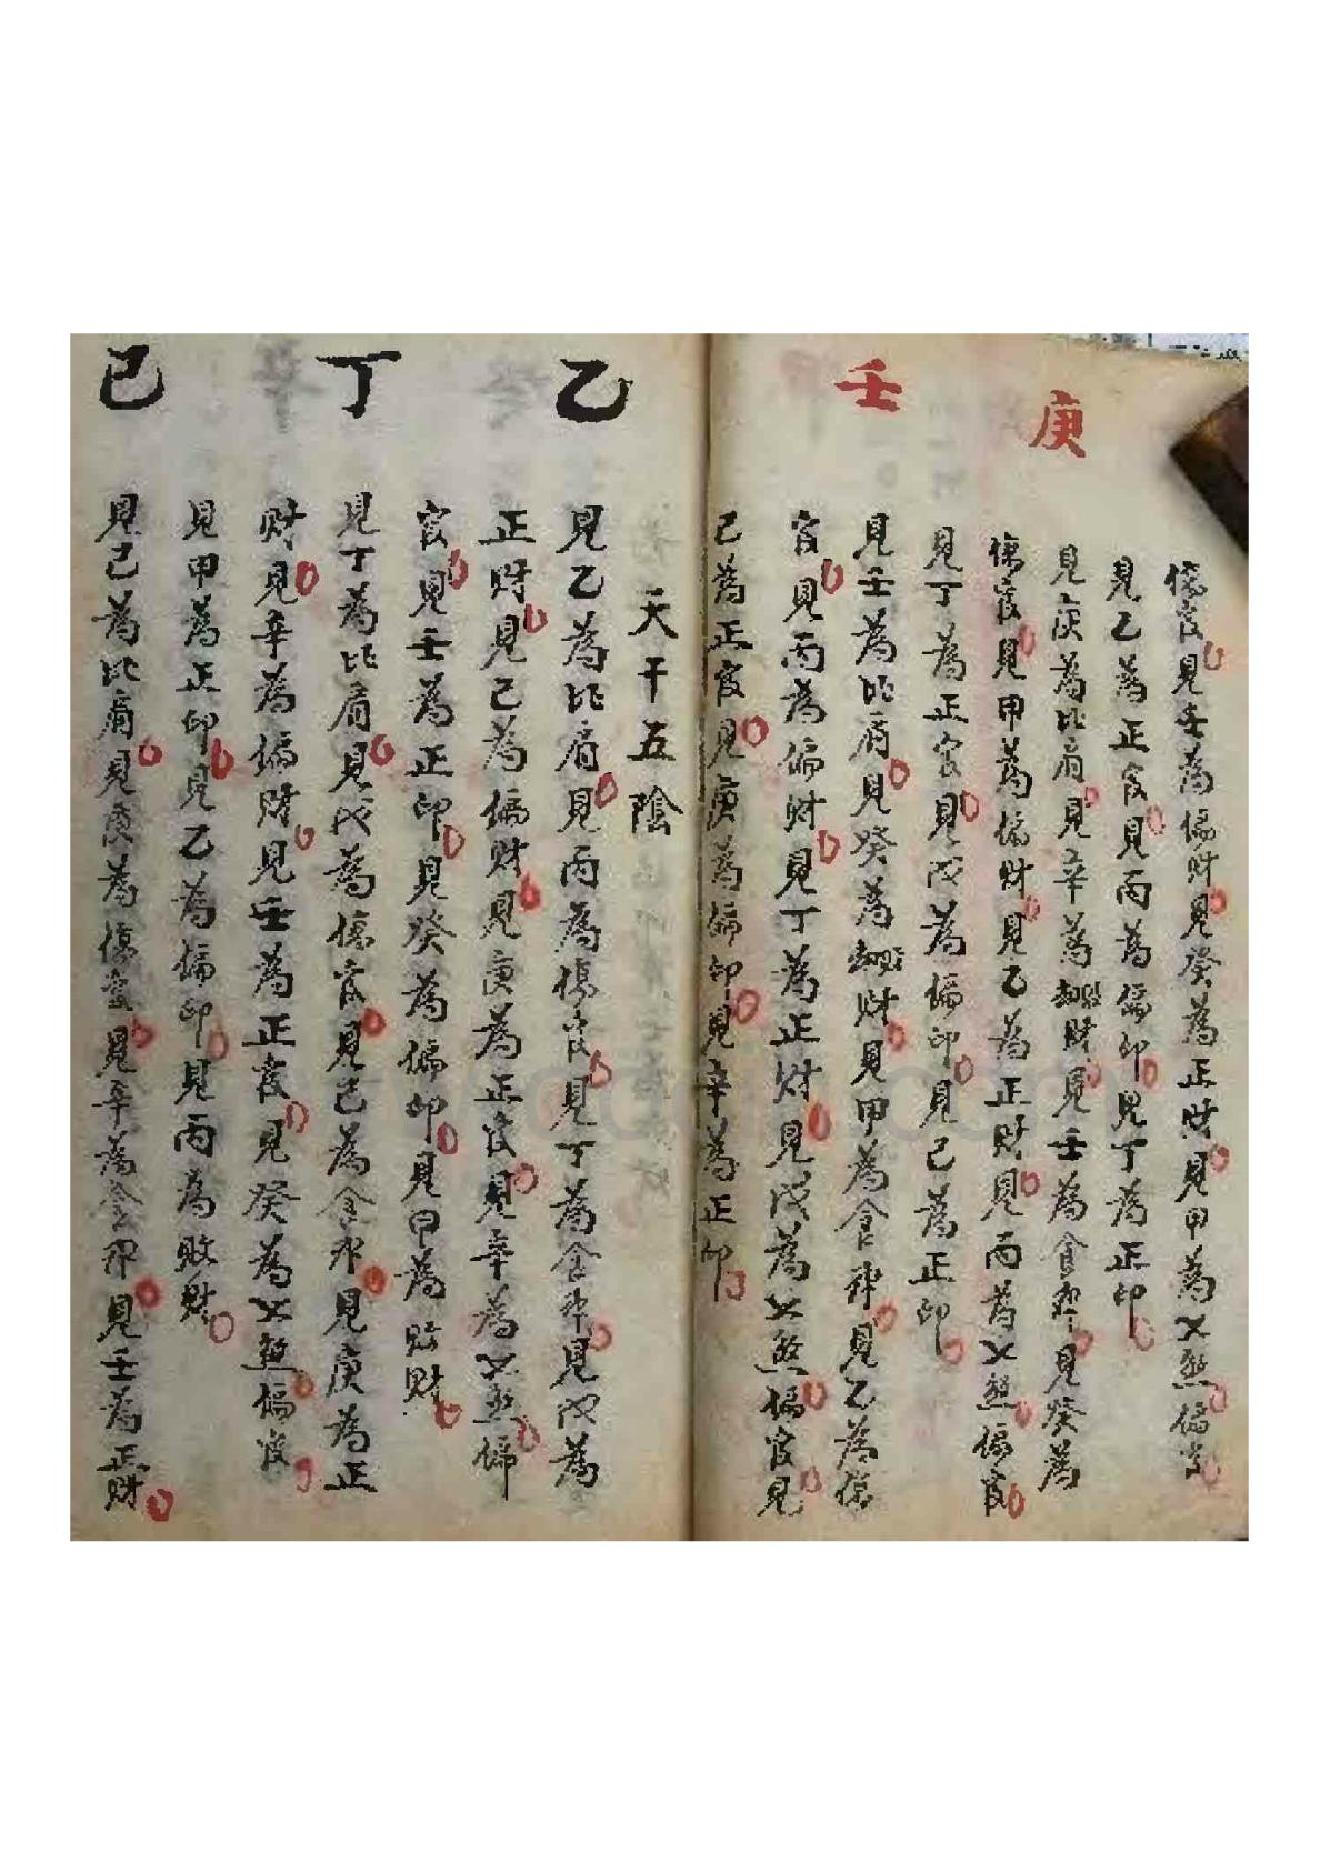 傷官見壬為偏財見癸為正財見甲為七煞偏官
見乙為正官見丙為偏印見丁為正印
庚
見庚為比肩見辛為刼財見壬為食神見癸為
傷官見甲為偏財見乙為正財見丙為七煞偏官
見丁為正官見戊為偏印見己為正印
壬
見壬為比肩見癸為刼財見甲為食神見乙為傷
官見丙為偏財見丁為正財見戊為七煞偏官見
己為正官見庚為偏印見辛為正印
天干五陰
乙
見乙為比肩見丙為傷官見丁為食神見戊為
正財見己為偏財見庚為正官見辛為七煞偏
官見壬為正印見癸為偏印見甲為敗財
丁
見丁為比肩見戊為傷官見己為食神見庚為正
財見辛為偏財見壬為正官見癸為七煞偏官
見甲為正印見乙為偏印見丙為敗財
己
見己為比肩見庚為傷官見辛為食神見壬為正財